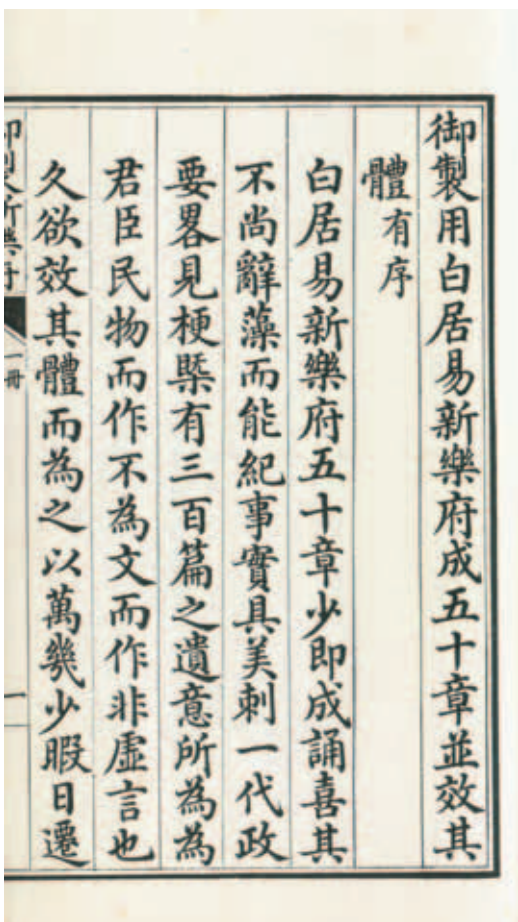 御製用白居易新樂府成五十章並效其
體有序
白居易新樂府五十章少即成誦喜其
不尚辭藻而能紀事實具美刺一代政
要畧見梗槩有三百篇之遺意所為為
君臣民物而作不為文而作非虛言也
久欲效其體而為之以萬幾少暇日遷
一冊
一